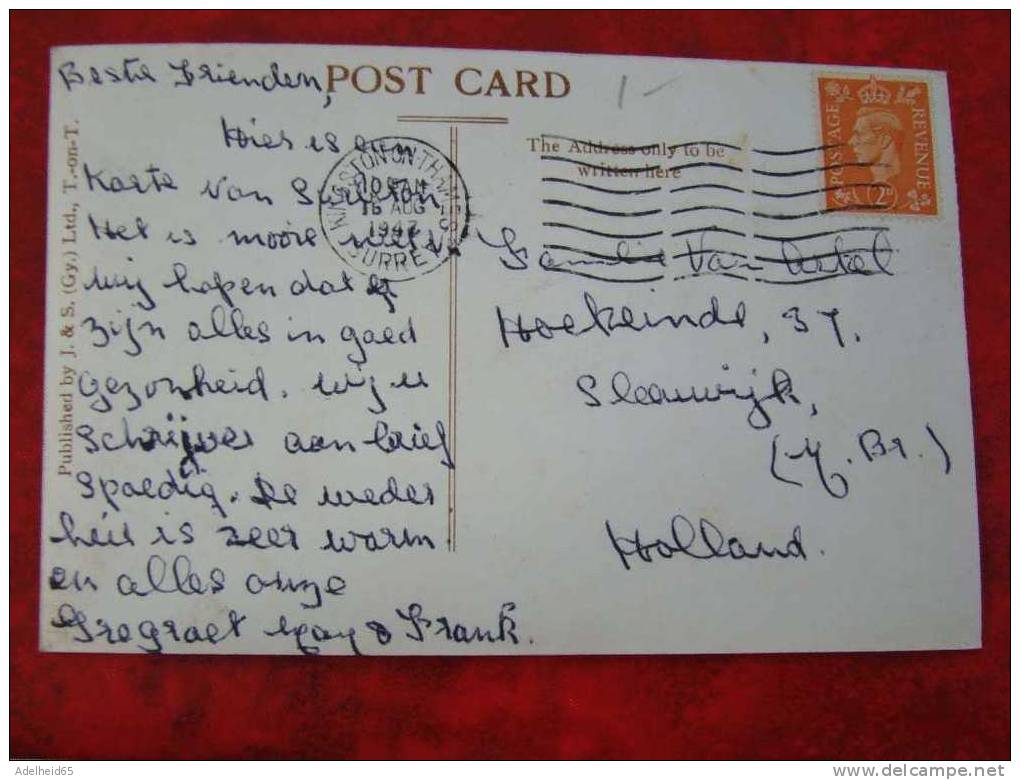 POST CARD
1-
Beste Frienden,
Hier is een
Kaarte van Surbiton
Het is mooie niet
wij hopen dat
zijn alles in goed
gezonheid. wij u
schrijver aan brief
spoedig. De weder
heir is zeer warm
en alles onze
Gregroet May & Frank.
Published by J. & S. (Gy.) Ltd., T.-on-T.
KINGSTON-ON-THAMES
10 AM
15 AUG
1947
SURREY
The Address only to be
written here
POSTAGE REVENUE
2D
Familie Van Arkel
Hoekeinde, 37,
Sleeuwijk,
(N. Br.)
Holland.
Adelheid65
www.delcampe.net